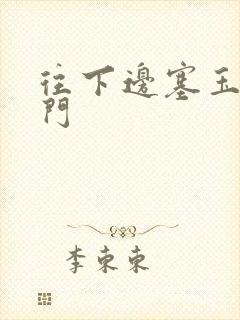 往下邊塞玉
門
李東東